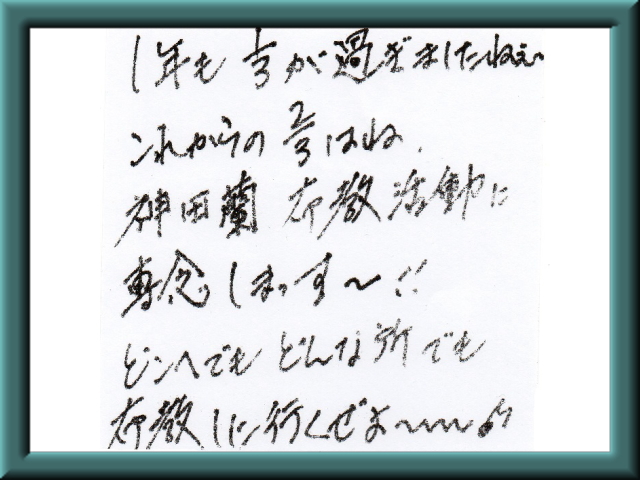 1年も 1/3が過ぎましたねぇ
これからの 2/3はね、
神田蘭 布教活動に
専念しまっす～!!
どこへでも どんな所でも
布教しに行くぜよ～～～♪